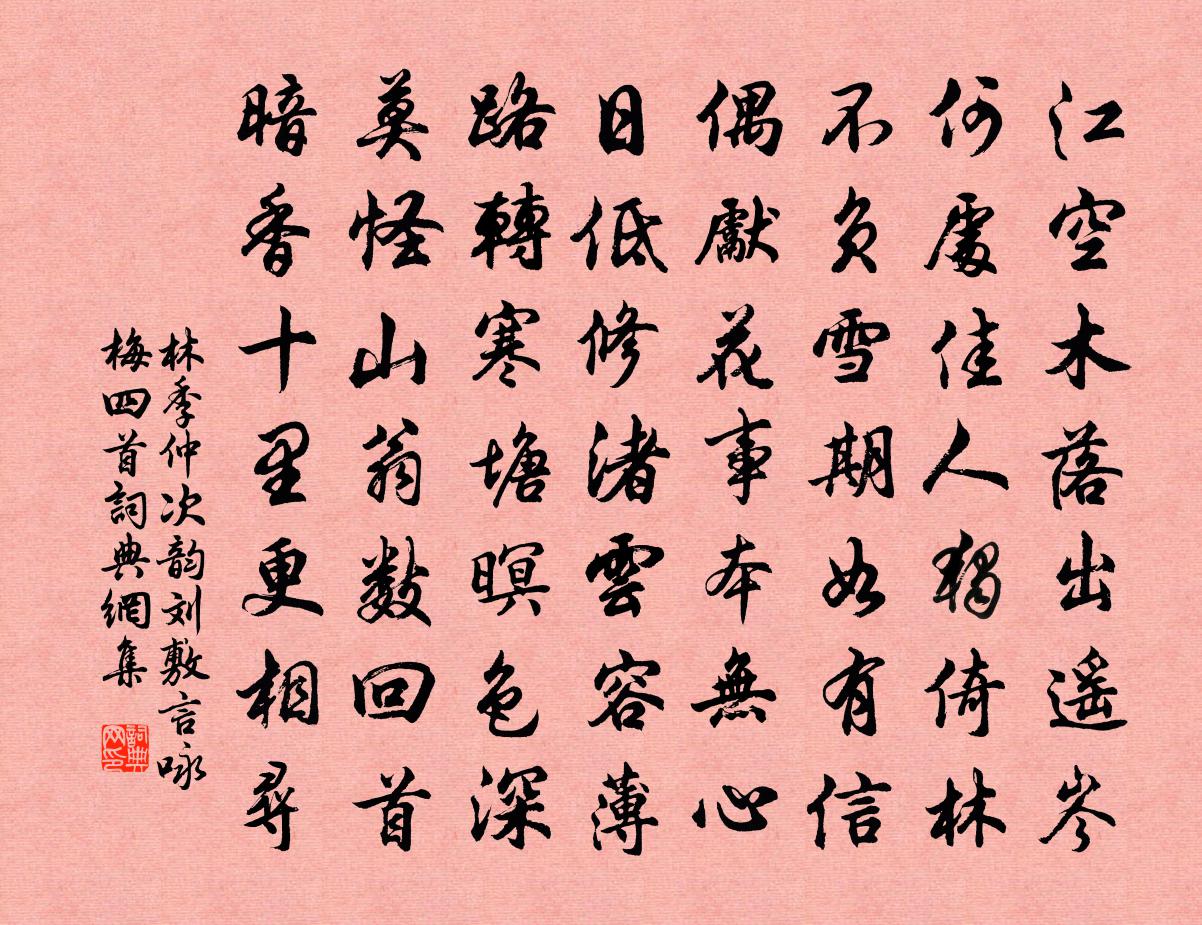 江空木落出遥岑
何處佳人獨倚林
不負雪期如有信
偶獻花事本無心
日低修渚雲容薄
路轉寒塘暝色深
莫怪山翁數回首
暗香十里更相尋
林季仲次韵刘敷言咏
梅四首詞典網集
詞典
网印